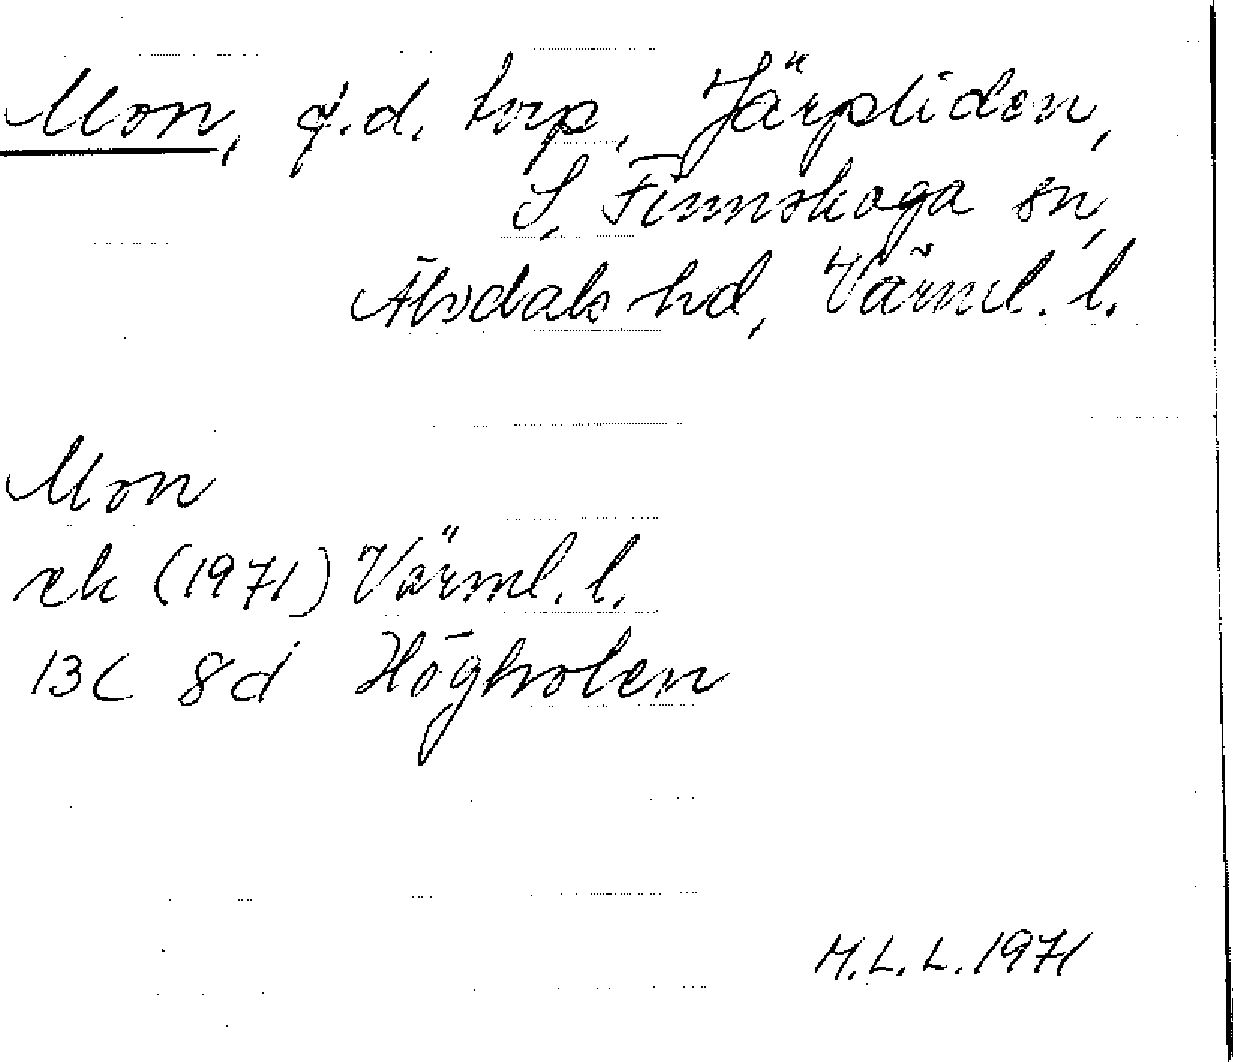 Mon, f.d. torp, Järpliden,
S. Finnskoga sn,
Älvdals hd, Värml. l.
Mon
ek (1971) Värml. l.
13C 8d Högholen
M.L.L. 1971